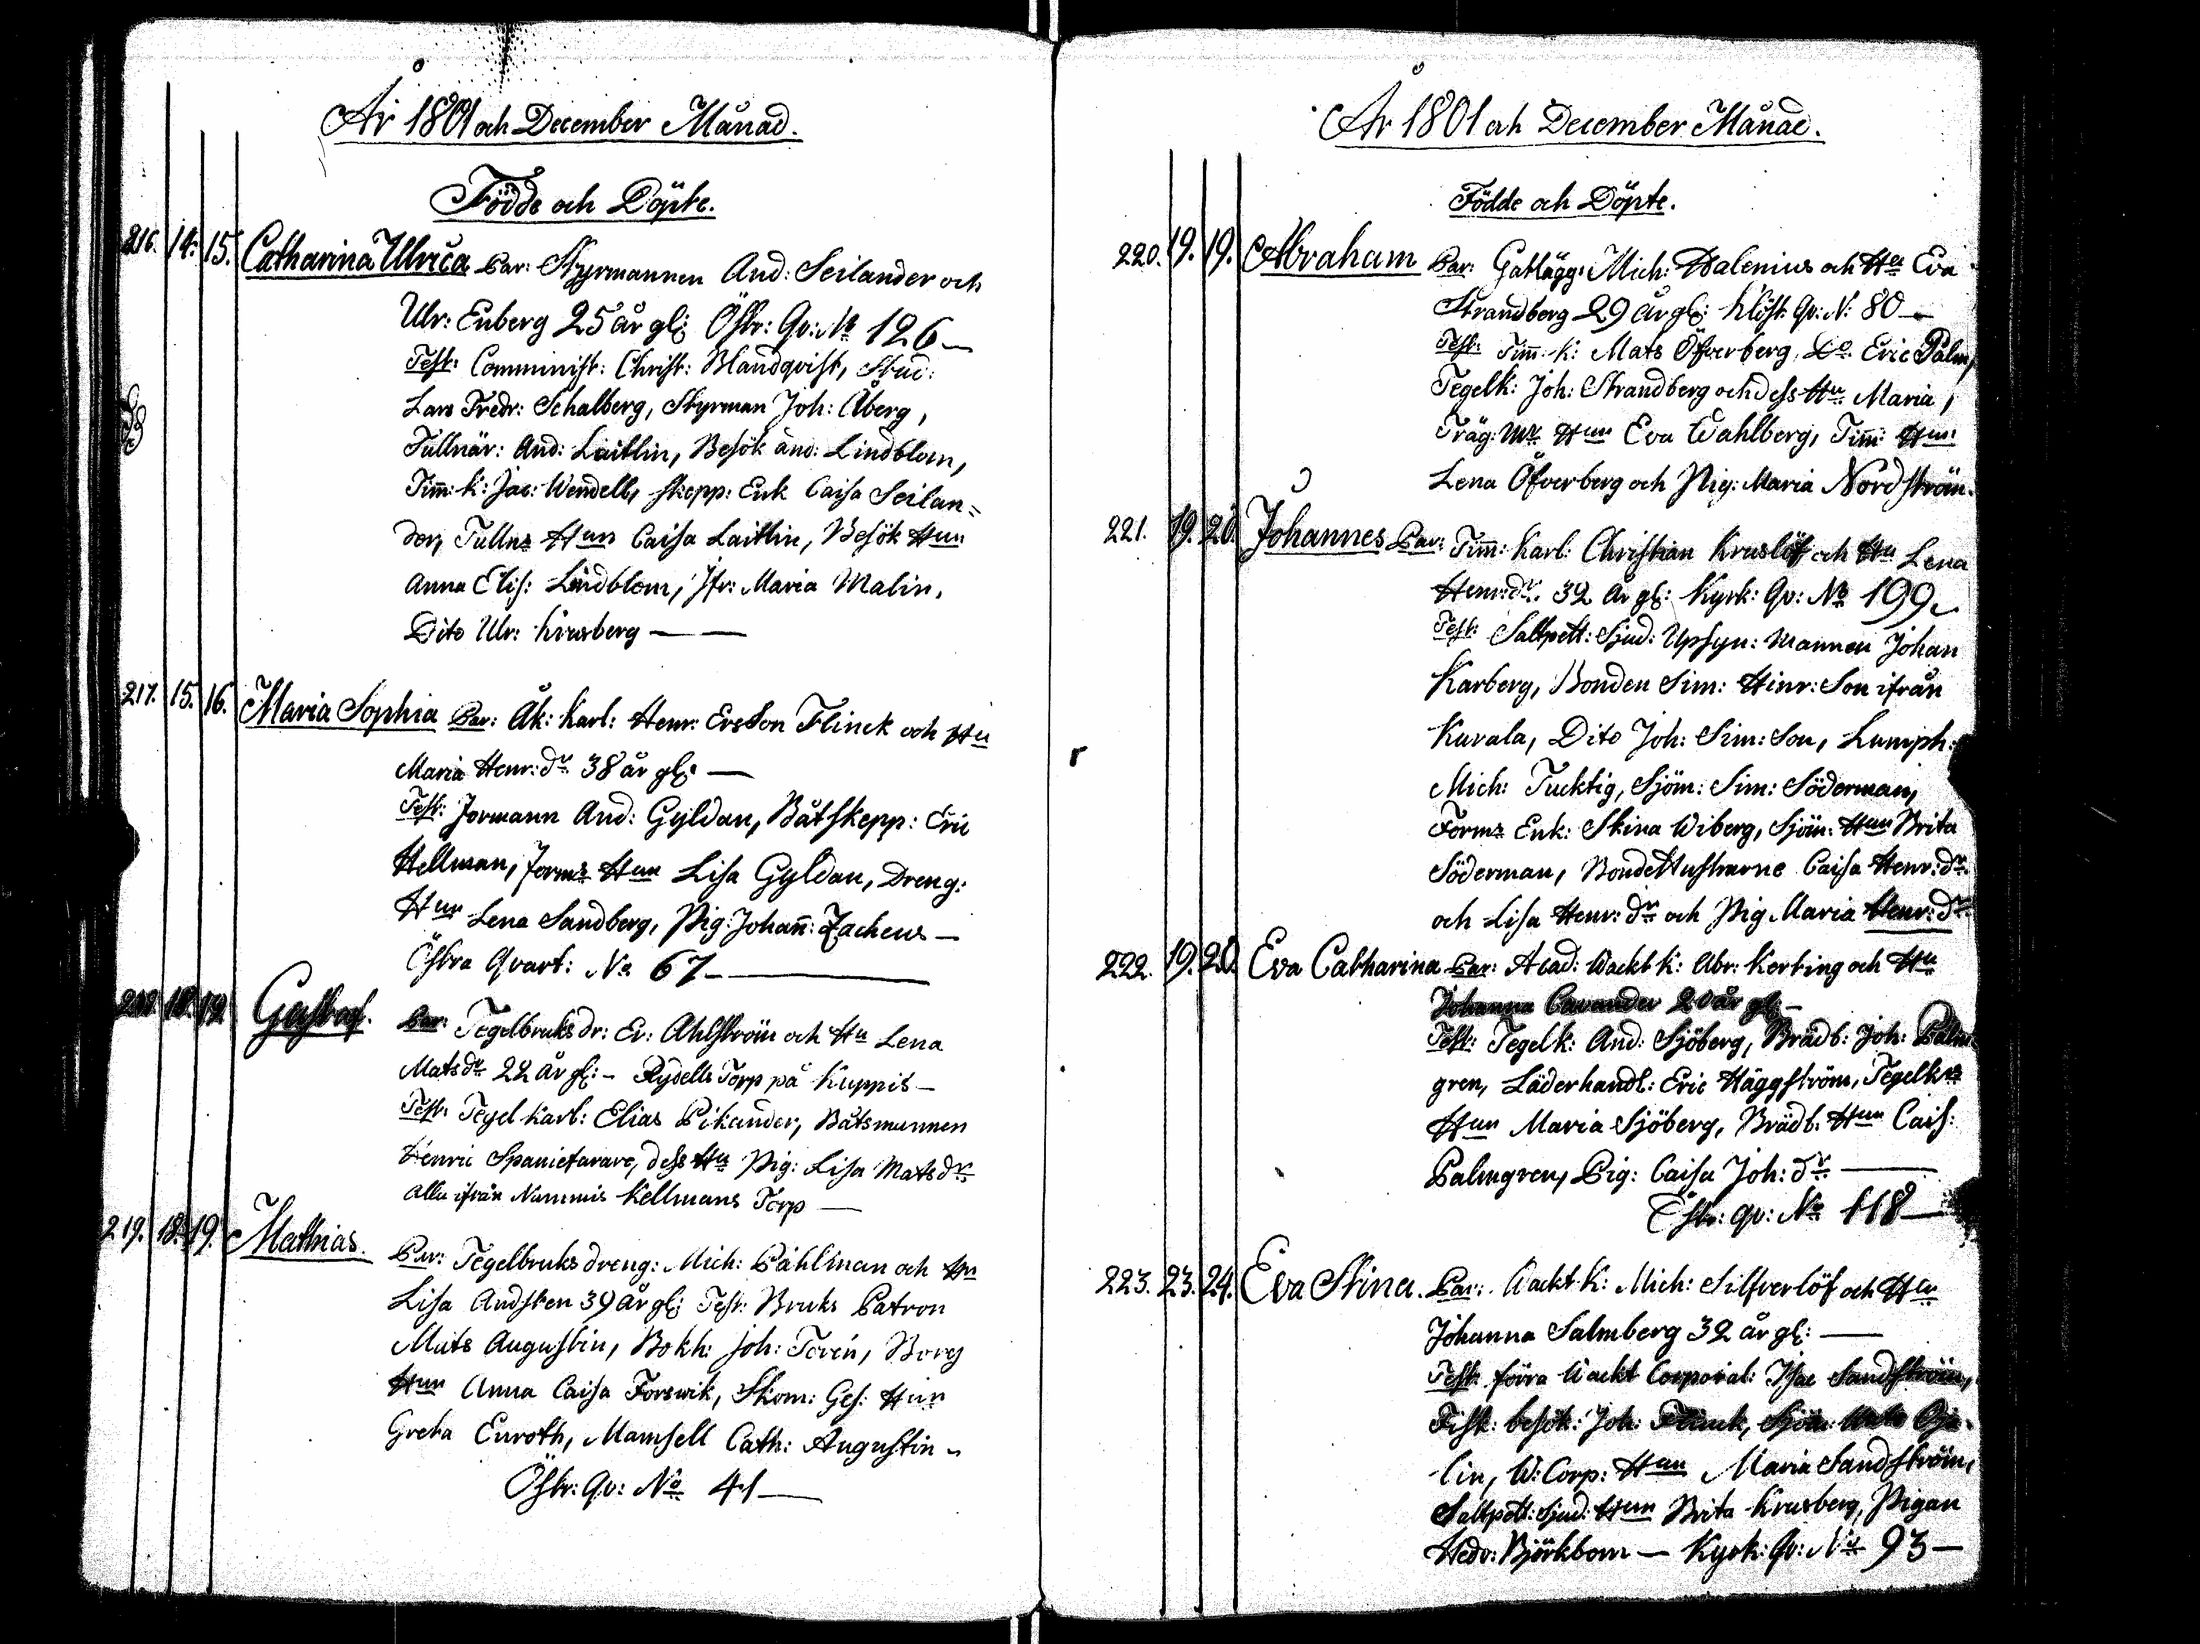 År 1801 och December Månad.
Födde och Döpte.
216. 14. 15. Catharina Ulrica Par: Styrmannen And: Seilander och
Ulr: Enberg 25 år gl: Östr: Qv: No 126 —
Test: Comminist: Christ: Blandqvist, Stud:
Lars Fredr: Schalberg, Styrman Joh: Åberg,
Tullnär: And: Laitlin, Besök And: Lindblom,
Tim̄: K: Jac: Wendell, Skepp: Enk Caisa Seilan=
der, Tullns Hun Caisa Laitlin, Besök Hun
Anna Elis: Lindblom, Jfr: Maria Malin,
Dito Ulr: Krusberg — —
217. 15. 16. Maria Sophia Par: Åk: Karl: Henr: Ersson Flinck och Hu
Maria Henr: dr 38 år gl: —
Test: Formann And: Gyldan, Båtskepp: Eric
Hellman, Forms Hun Lisa Gyldan, Dreng:
Hun Lena Sandberg, Pig: Johan̄: Zacheus —
Östra Qvart: No 67 —
218. 18. 19. Gustaf. Par: Tegelbruks dr: Er: Ahlström och Hu Lena
Mats dr 22 år gl: — Rydells Torp på Kuppis —
Test: Tegel Karl: Elias Pikander, Båtsmannen
Henric Spanietarare, dess Hu Pig: Lisa Mats dr
alla ifrån Nummis Kellmans Torp —
219. 18. 19. Mathias. Par: Tegelbruks dreng: Mich: Påhlman och Hu
Lisa Andsten 39 år gl: Test: Bruks Patron
Mats Augustin, Bokh: Joh: Torén, Borg
Hun Anna Caisa Forswik, Skom: Ges: Hun
Greta Enroth, Mamsell Cath: Augustin —
Östr: Qv: No 41 —
År 1801 och December Månad.
Födde och Döpte.
220. 19. 19. Abraham Par: Gatlägg: Mich: Dalenius och Hu Eva
Strandberg 29 år gl: Klöst: Qv: N: 80 —
Test: Tim̄: K: Mats Öfverberg, Do Eric Palm,
Tegelk: Joh: Strandberg och dess Hu Maria,
Träg: Mr Hun Eva Wahlberg, Tim̄: Hun
Lena Öfverberg och Pig: Maria Nordström.
221. 19. 20. Johannes Par: Tim̄: Karl: Christian Kruslöf och Hu Lena
Henr: dr 32 år gl: Kyrk: Qv: No 199 —
Test: Saltpett: Sjud: Upsyn: Mannen Johan
Karberg, Bonden Sim: Hinr: Son ifrån
Kurala, Dito Joh: Sim: Son, Lumph:
Mich: Tucktig, Sjöm: Sim: Söderman,
Forms Enk: Stina Wiberg, Sjöm: Hun Brita
Söderman, Bonde Hustrurne Caisa Henr: dr
och Lisa Henr: dr och Pig Maria Henr: dr
222. 19. 20. Eva Catharina Par: Acad: Wackt K: Abr: Kerting och Hu
Johanna Cavander 20 år gl: —
Test: Tegelk: And: Sjöberg, Brädb: Joh: Palm
gren, Läderhandl: Eric Häggström, Tegelks
Hun Maria Sjöberg, Brädb: Hun Cais:
Palmgren, Pig: Caisa Joh: dr —
Östr: Qv: No 118 —
223. 23. 24. Eva Stina. Par: Wackt K: Mich: Silfverlöf och Hu
Johanna Salmberg 32 år gl: —
Test: förra Wackt Corporal: Isac Sandström,
Fisk: besök: Joh: Flinck, Sjöm:
lin, W: Corp: Hun Maria Sandström,
Saltpett: Sjud: Hun Brita Krusberg, Pigan
Hedv: Björkbom — Kyrk: Qv: No 93 —